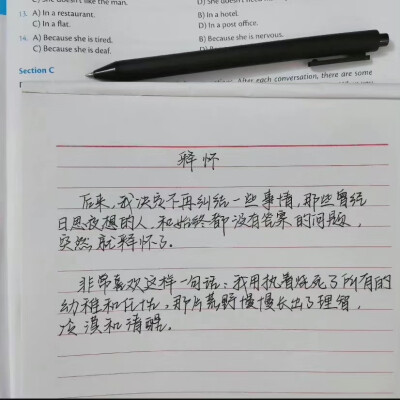 13. A) In a restaurant. B) In a hotel.
C) In a flat. D) In a post office.
14. A) Because she is tired. B) Because she is nervous.
C) Because she is deaf.
Section C
After each conversation, there are some
释怀
后来,我决定不再纠结一些事情,那些曾经
日思夜想的人,和始终都没有答案的问题,
突然就释怀了。
非常喜欢这样一句话:我用执着烧死了所有的
幼稚和任性,那片荒野慢慢长出了理智,
冷漠和清醒。